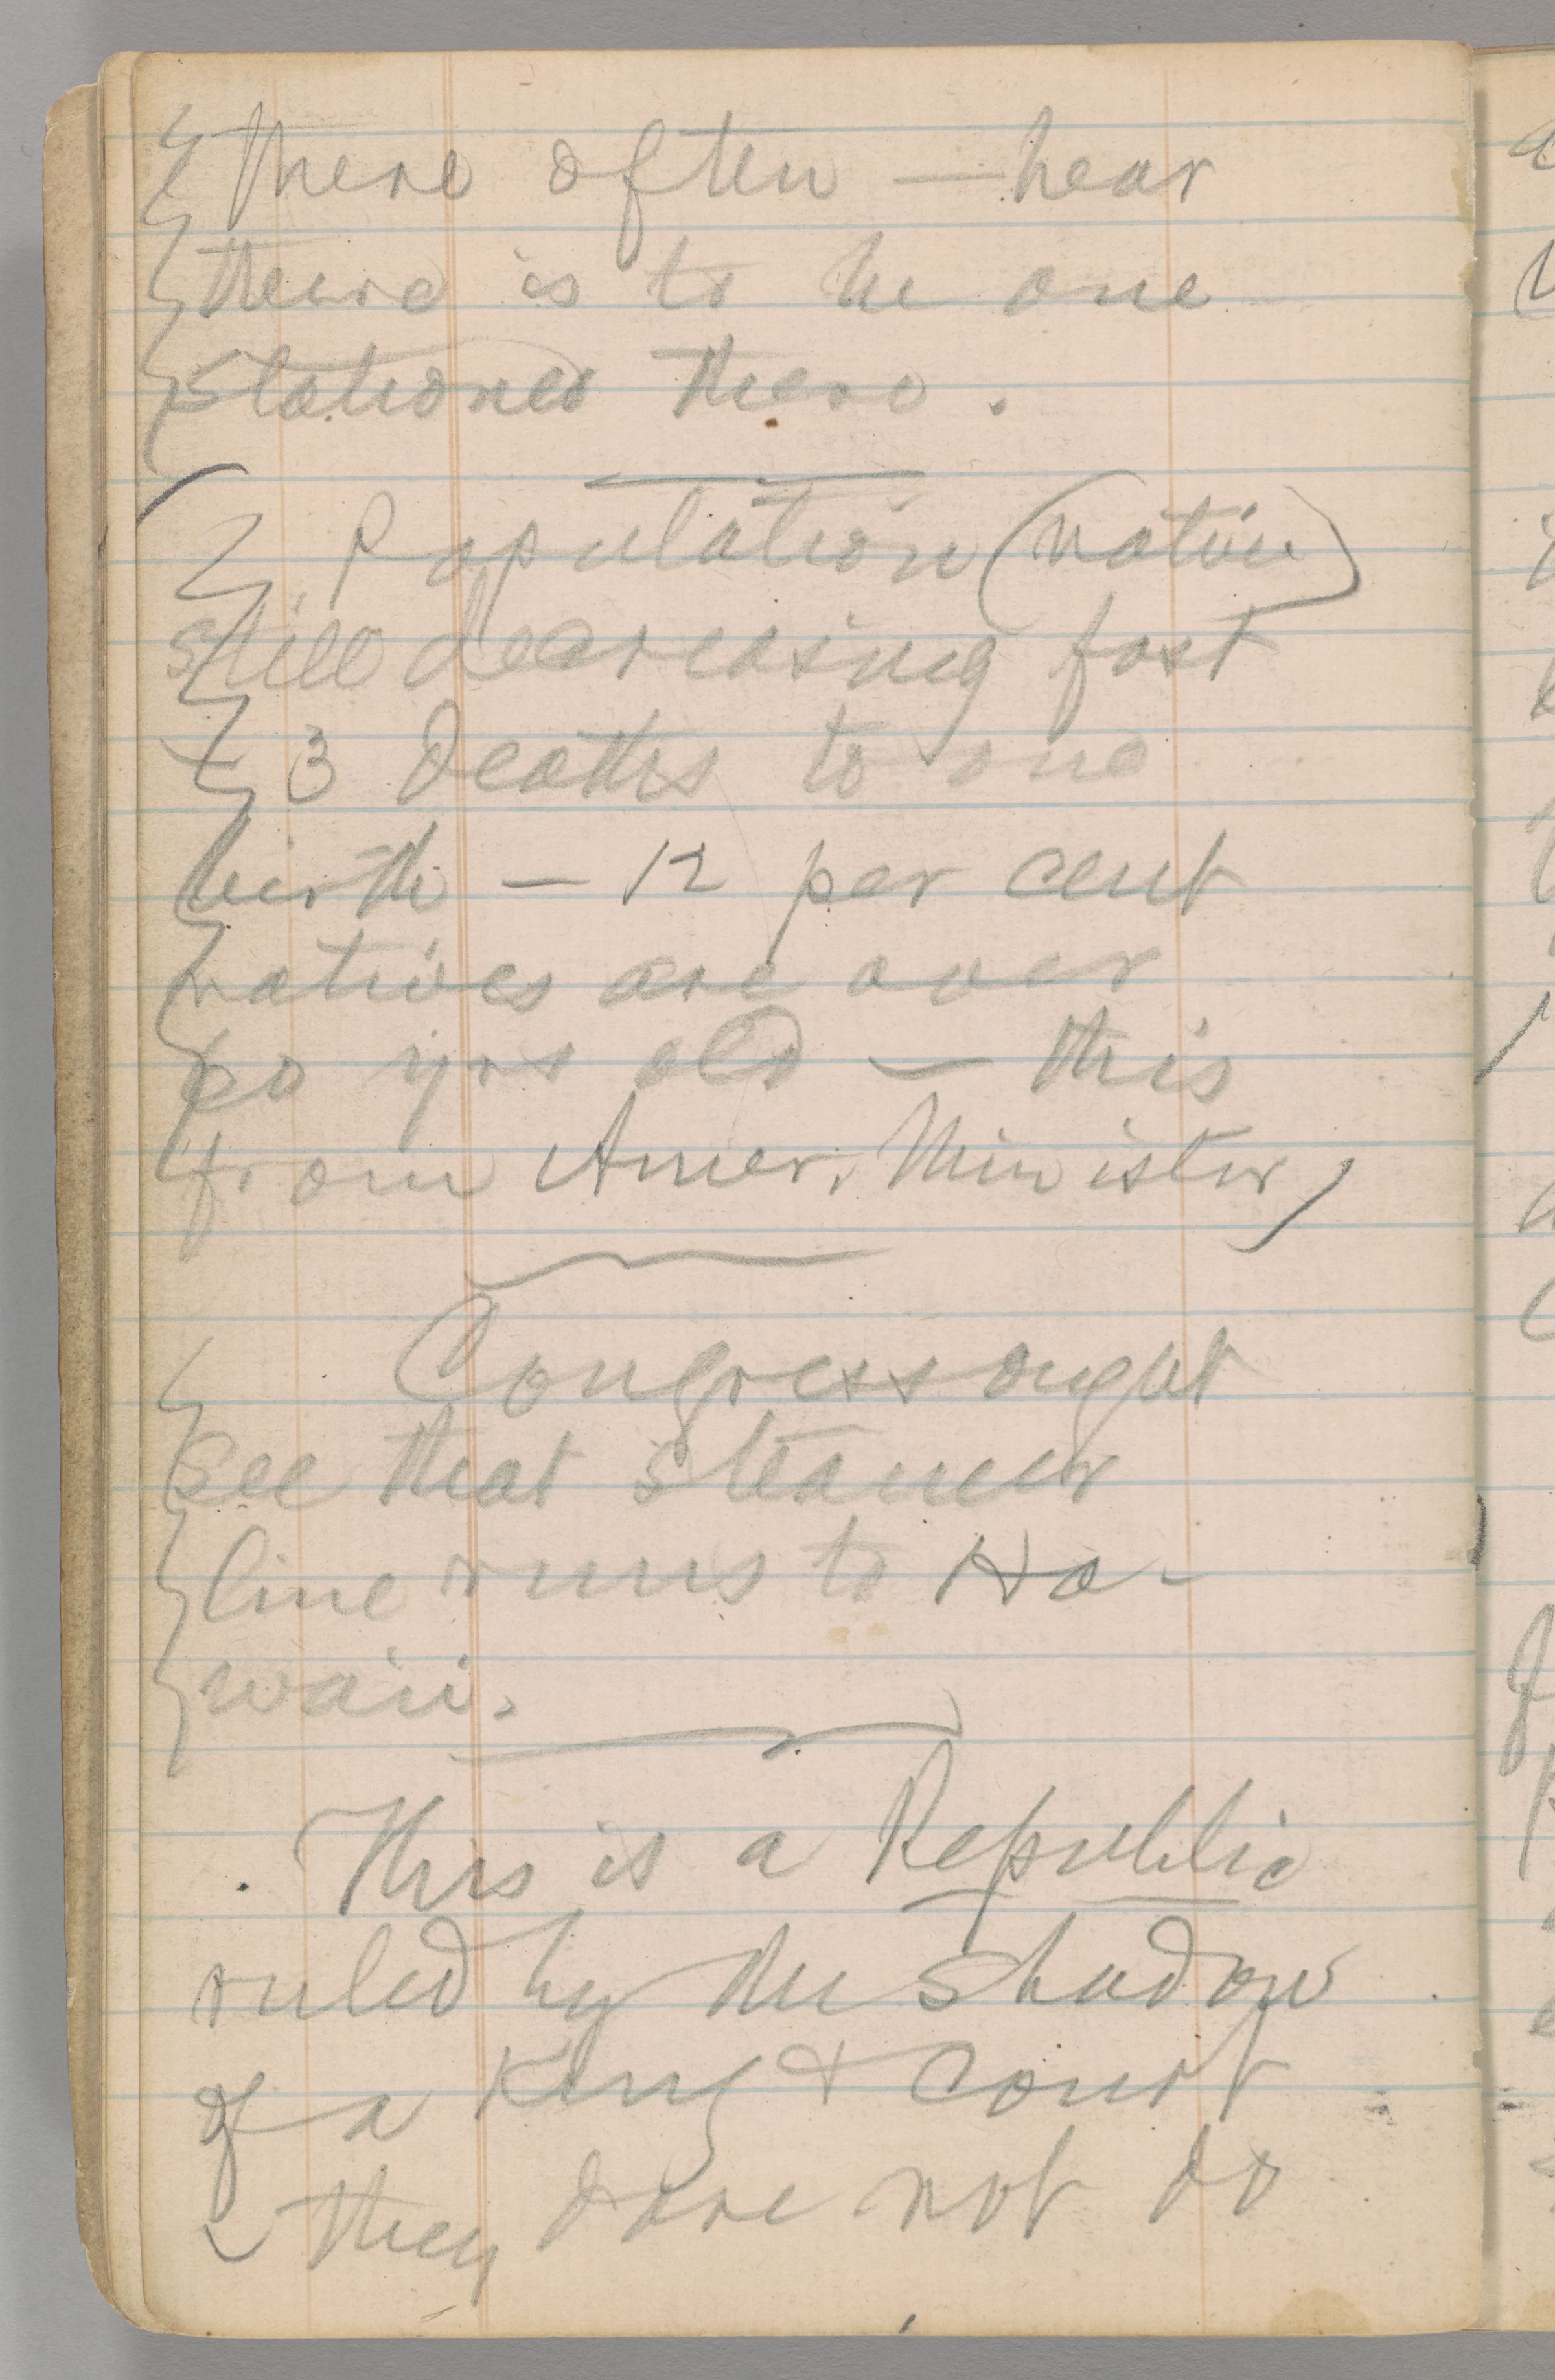 there often — hear
there is to be one
stationed there.
Population (native)
still decreasing fast
— 3 deaths to one
birth — 12 per cent
natives are over
60 yrs old — this
from Amer. Minister)
Congress ought
see that steamer
line runs to Ha-
waii.
This is a Republic
ruled by the shadow
of a King & Court
— they dare not do